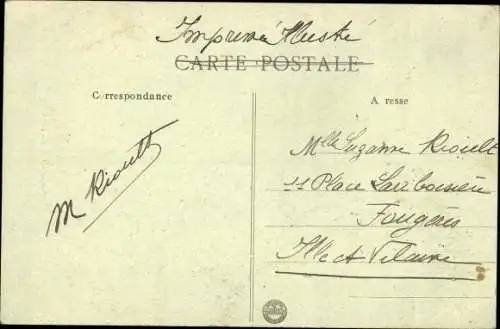 Imprimé Illustré
CARTE POSTALE
Correspondance
A resse
Mlle Suzanne Rioult
11 Place Lariboisière
Fougères
Ille et Vilaine
M Rioult